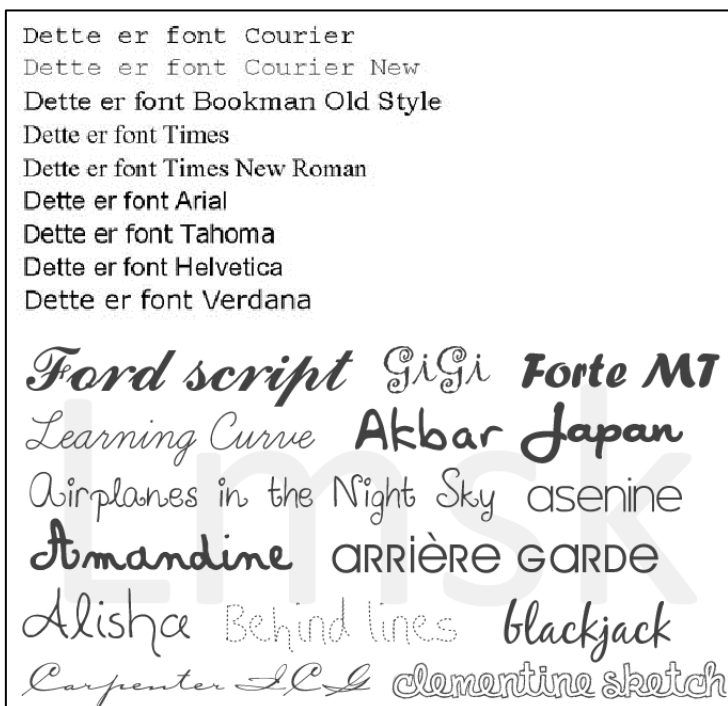 Dette er font Courier
Dette er font Courier New
Dette er font Bookman Old Style
Dette er font Times
Dette er font Times New Roman
Dette er font Arial
Dette er font Tahoma
Dette er font Helvetica
Dette er font Verdana
Ford script GiGi Forte MT
Learning Curve Akbar Japan
Airplanes in the Night Sky asenine
Amandine ARRIÈRE GARDE
Lmsk
Alisha Behind lines blackjack
Carpenter ICG clementine sketch